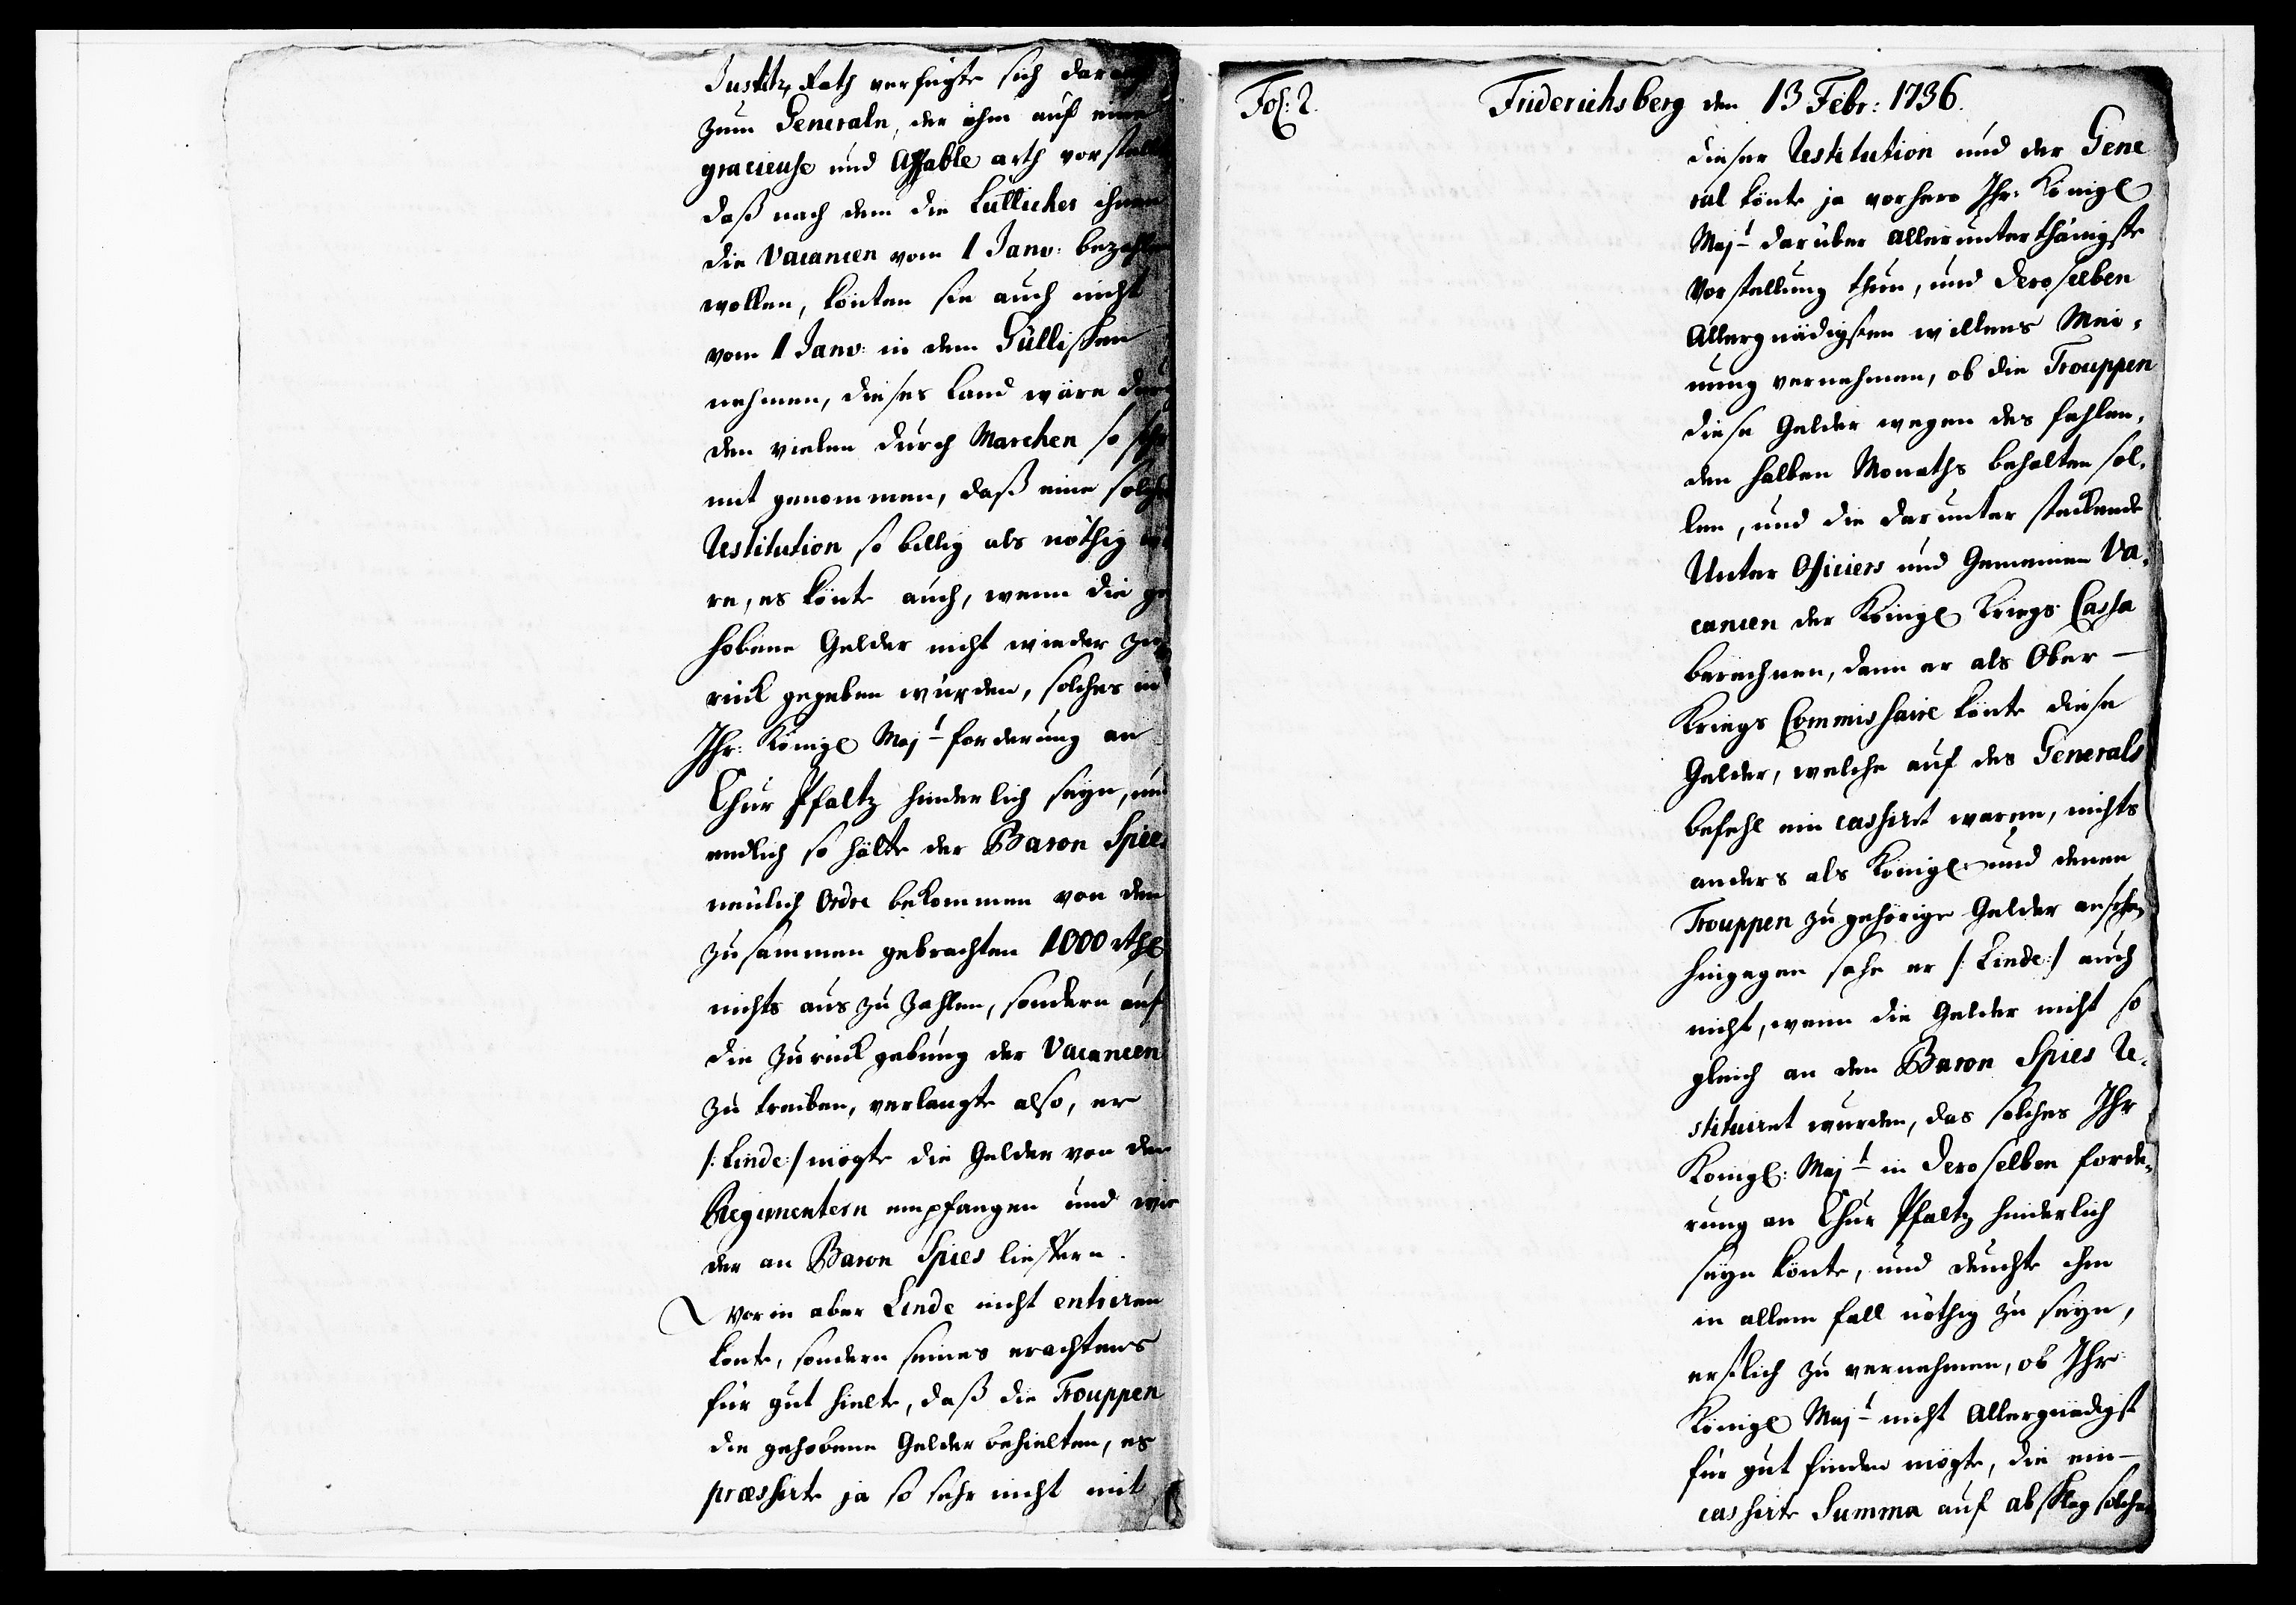 Justitz Rath verfügte sich darauf
zum Generaln, der ihm auf eine
gracieuse und Affable arth vorstellte
daß nach dem die Lütticher ihnen
die Vacancen vom 1 Janv: bezahlen
wollen, könten sie auch nicht
vom 1 Janv: in dem Gülligschen
nehmen, dieses Land wäre durch
den vielen durch Marchen so sehr
mit genommen, daß eine solche
Restitution so billig als nöthig wä
re, es könte auch, wenn die ge
hobene Gelder nicht wieder zu
rück gegeben würden, solches in
Ihr: Königl Majt forderung an
Chur Pfaltz hinderlich seyn, und
endlich so hätte der Baron Spies
neulich Ordre bekommen von den
zusammen gebrachten 1000 rthl
nichts aus zu zahlen, sondern auf
die zurückgebung der Vacancen
zu treiben, verlangte also, er
/: Linde :/ mögte die Gelder von den
Regimentern empfangen und wie
der an Baron Spies lieffern.
Worin aber Linde nicht entriren
konte, sondern seines erachtens
für gut hielte, daß die Trouppen
die gehobene Gelder behielten, es
pressirte ja so sehr nicht mit
Fol: 2. Friderichsberg den 13 Febr: 1736.
dieser Restitution und der Gene
ral könte ja vorhero Ihr: Königl
Majt darüber allerunterthänigste
Vorstellung thun, und deroselben
Allergnädigsten willens Mei-
nung vernehmen, ob die Trouppen
diese Gelder wegen des fehlen-
den halben Monaths behalten sol-
len, und die darunter steckende
Unter Officiers und Gemeinen Va-
cancen der Königl Kriegs Cassa
berechnen, denn er als Ober-
Kriegs Commissaire könte diese
Gelder, welche auf des Generals
befehl ein cassirt waren, nichts
anders als Königl: und denen
Trouppen zugehörige Gelder ansehen
hingegen sehe er /: Linde :/ auch
nicht, wenn die Gelder nicht so
gleich an den Baron Spies Re-
stituiret wurden, das solches Ihr
Königl: Majt in deroselben forde-
rung an Chur Pfaltz hinderlich
seyn könte, und deuchte ihm
in allem fall nöthig zu seyn,
erstlich zu vernehmen, ob Ihr
Königl Majt nicht Allergnädigst
für gut finden mögte, die ein-
cassirte Summa auf abschlag solcher